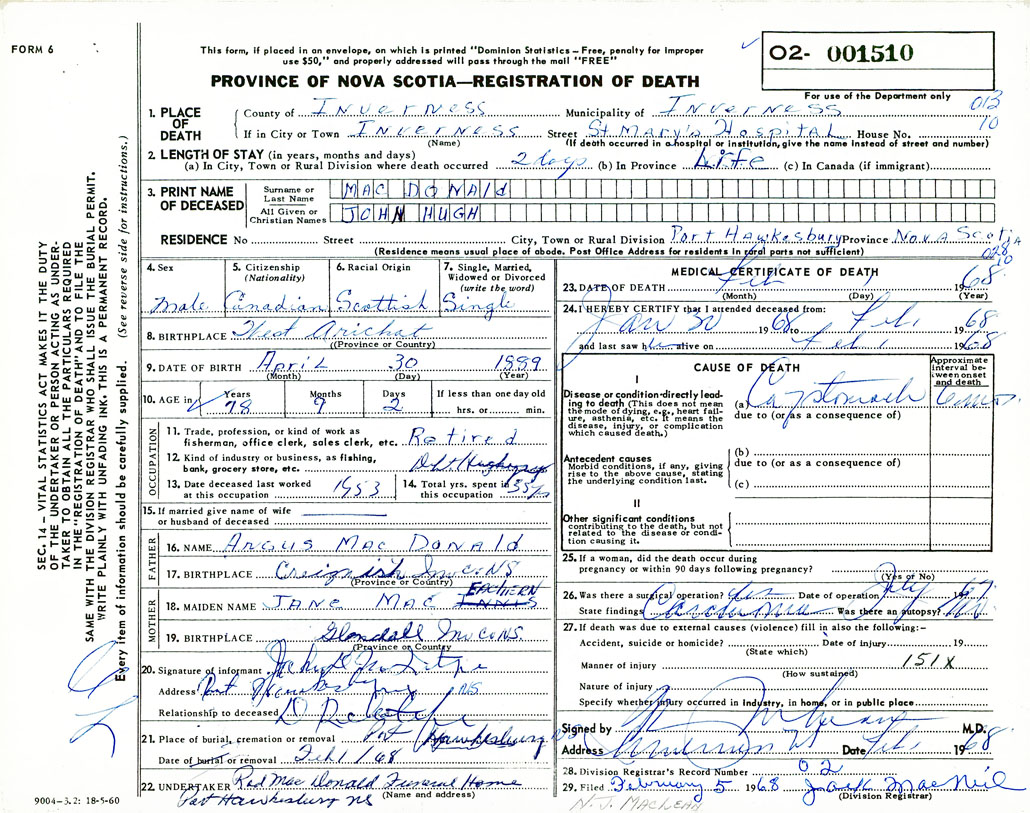 FORM 6
This form, if placed in an envelope, on which is printed "Dominion Statistics – Free, penalty for improper
use $50," and properly addressed will pass through the mail "FREE"
02- 001510
PROVINCE OF NOVA SCOTIA—REGISTRATION OF DEATH
For use of the Department only
013
10
1. PLACE OF DEATH
County of Inverness Municipality of Inverness
If in City or Town Inverness Street St Mary's Hospital House No.
(Name) (If death occurred in a hospital or institution, give the name instead of street and number)
2. LENGTH OF STAY (in years, months and days)
(a) In City, Town or Rural Division where death occurred 2 days (b) In Province Life (c) In Canada (if immigrant)
3. PRINT NAME OF DECEASED
Surname or Last Name MAC DONALD
All Given or Christian Names JOHN HUGH
RESIDENCE No Street City, Town or Rural Division Port Hawkesbury Province Nova Scotia
(Residence means usual place of abode. Post Office Address for residents in rural parts not sufficient)
028
10
4. Sex Male
5. Citizenship (Nationality) Canadian
6. Racial Origin Scottish
7. Single, Married, Widowed or Divorced (write the word) Single
8. BIRTHPLACE West Arichat
(Province or Country)
9. DATE OF BIRTH April 30 1889
(Month) (Day) (Year)
10. AGE in Years 78 Months 9 Days 2 If less than one day old
hrs. or min.
OCCUPATION
11. Trade, profession, or kind of work as
fisherman, office clerk, sales clerk, etc. Retired
12. Kind of industry or business, as fishing,
bank, grocery store, etc. Dept Highways
13. Date deceased last worked
at this occupation 1953
14. Total yrs. spent in
this occupation 35
15. If married give name of wife
or husband of deceased
FATHER
16. NAME Angus Mac Donald
17. BIRTHPLACE Creignish Inv Co NS
(Province or Country)
MOTHER
18. MAIDEN NAME Jane Mac EACHERN
19. BIRTHPLACE Glendale Inv Co NS.
(Province or Country)
20. Signature of informant
Address Port Hawkesbury NS
Relationship to deceased
21. Place of burial, cremation or removal Port Hawkesbury
Date of burial or removal Feb 1/68
22. UNDERTAKER Red Mac Donald Funeral Home
Port Hawkesbury NS (Name and address)
MEDICAL CERTIFICATE OF DEATH
23. DATE OF DEATH Feb 1 1968
(Month) (Day) (Year)
24. I HEREBY CERTIFY that I attended deceased from:
Jan 30 1968 to Feb 1 1968
and last saw h alive on Feb 1 1968
CAUSE OF DEATH
Approximate interval between onset and death
I
Disease or condition directly leading to death (This does not mean the mode of dying, e.g., heart failure, asthenia, etc. It means the disease, injury, or complication which caused death.)
(a) Ca stomach 6 mos.
due to (or as a consequence of)
Antecedent causes
Morbid conditions, if any, giving rise to the above cause, stating the underlying condition last.
(b)
due to (or as a consequence of)
(c)
II
Other significant conditions
contributing to the death, but not related to the disease or condition causing it.
25. If a woman, did the death occur during
pregnancy or within 90 days following pregnancy?
(Yes or No)
26. Was there a surgical operation? Yes Date of operation 67
State findings Carcinoma Was there an autopsy? No
27. If death was due to external causes (violence) fill in also the following:–
Accident, suicide or homicide? Date of injury 19
(State which)
Manner of injury 151X
(How sustained)
Nature of injury
Specify whether injury occurred in Industry, in home, or in public place
Signed by M.D.
Address Inverness NS Date Feb 1 1968
28. Division Registrar's Record Number 02
29. Filed February 5 1968 Jack MacNeil
(Division Registrar)
N. J. MACLEAN
SEC. 14 – VITAL STATISTICS ACT MAKES IT THE DUTY
OF THE UNDERTAKER OR PERSON ACTING AS UNDERTAKER TO OBTAIN ALL THE PARTICULARS REQUIRED
IN THE "REGISTRATION OF DEATH" AND TO FILE THE
SAME WITH THE DIVISION REGISTRAR WHO SHALL ISSUE THE BURIAL PERMIT.
WRITE PLAINLY WITH UNFADING INK. THIS IS A PERMANENT RECORD.
Every item of information should be carefully supplied. (See reverse side for instructions.)
9004-3.2: 18-5-60